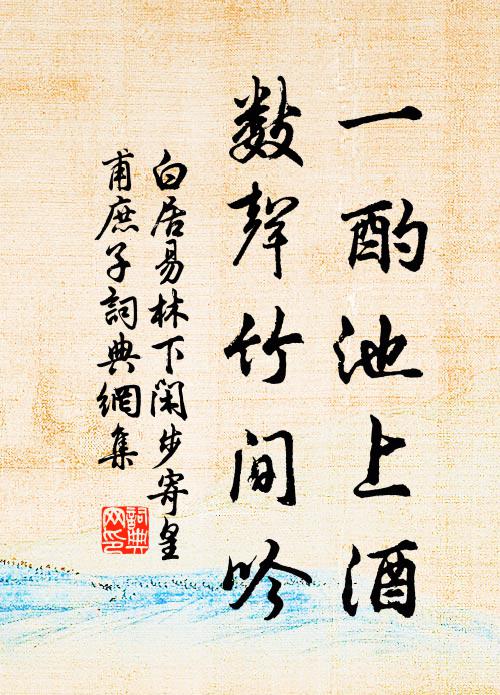 一酌池上酒
数聲竹间吟
白居易林下闲步寄皇
甫庶子詞典網集
詞典
网印